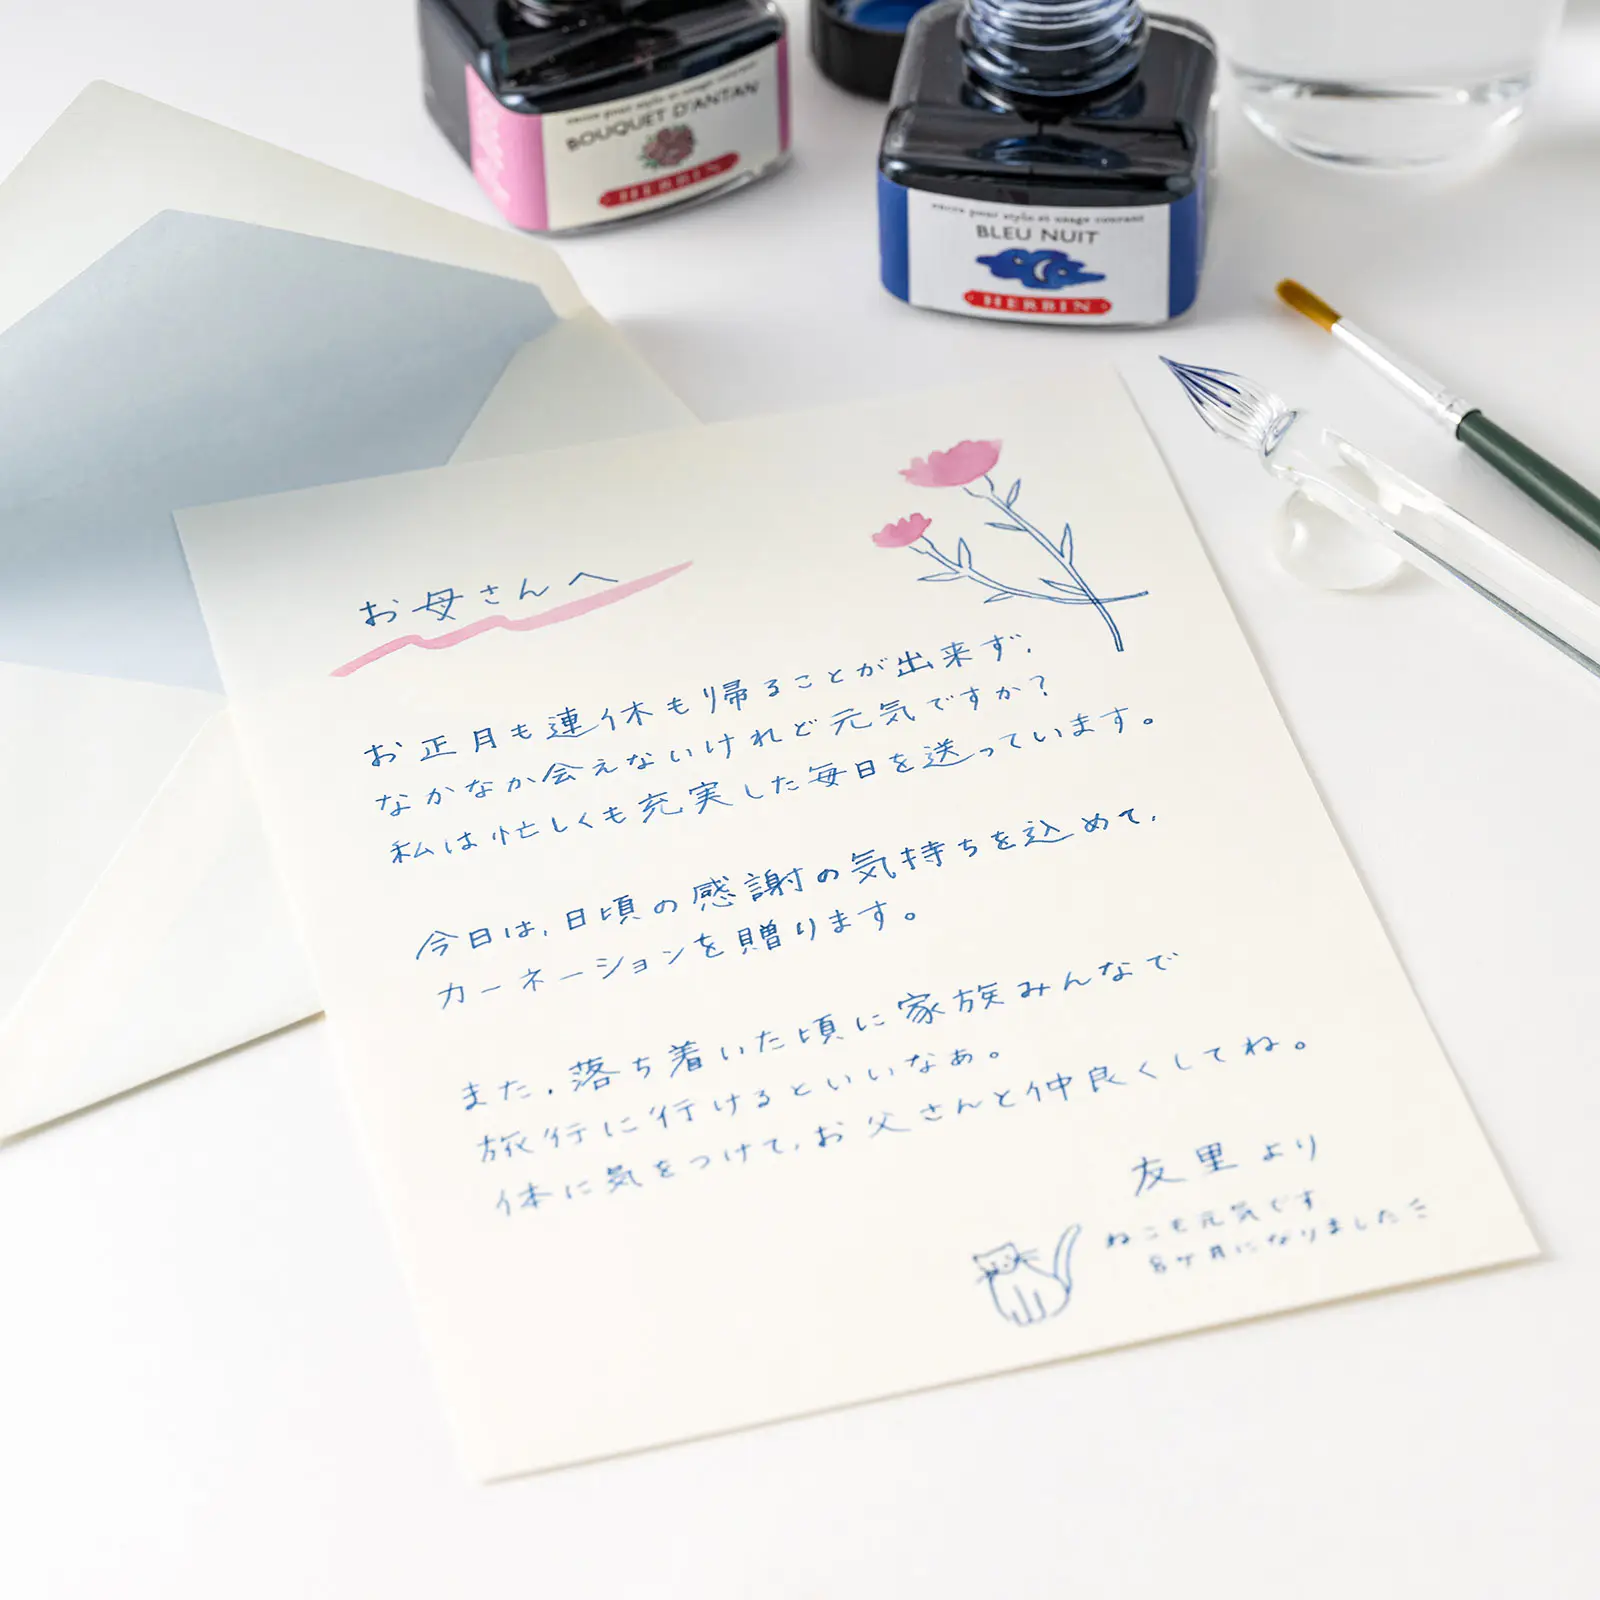 BOUQUET D'ANTAN
HERBIN
encre pour stylo et usage courant
BLEU NUIT
HERBIN
お母さんへ
お正月も連休も帰ることが出来ず、
なかなか会えないけれど元気ですか?
私は忙しくも充実した毎日を送っています。
今日は、日頃の感謝の気持ちを込めて、
カーネーションを贈ります。
また、落ち着いた頃に家族みんなで
旅行に行けるといいなぁ。
体に気をつけて、お父さんと仲良くしてね。
友里より
ねこも元気です
8ヶ月になりました